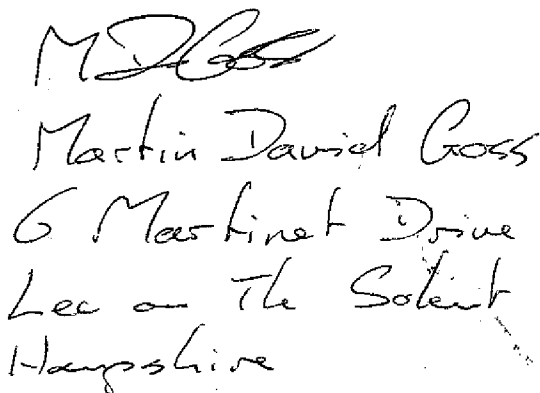 M D Goss
Martin David Goss
6 Martinet Drive
Lee on The Solent
Hampshire